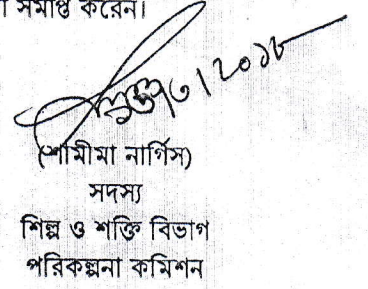 সমাপ্ত করেন।
২০১৮
(শামীমা নার্গিস)
সদস্য
শিল্প ও শক্তি বিভাগ
পরিকল্পনা কমিশন